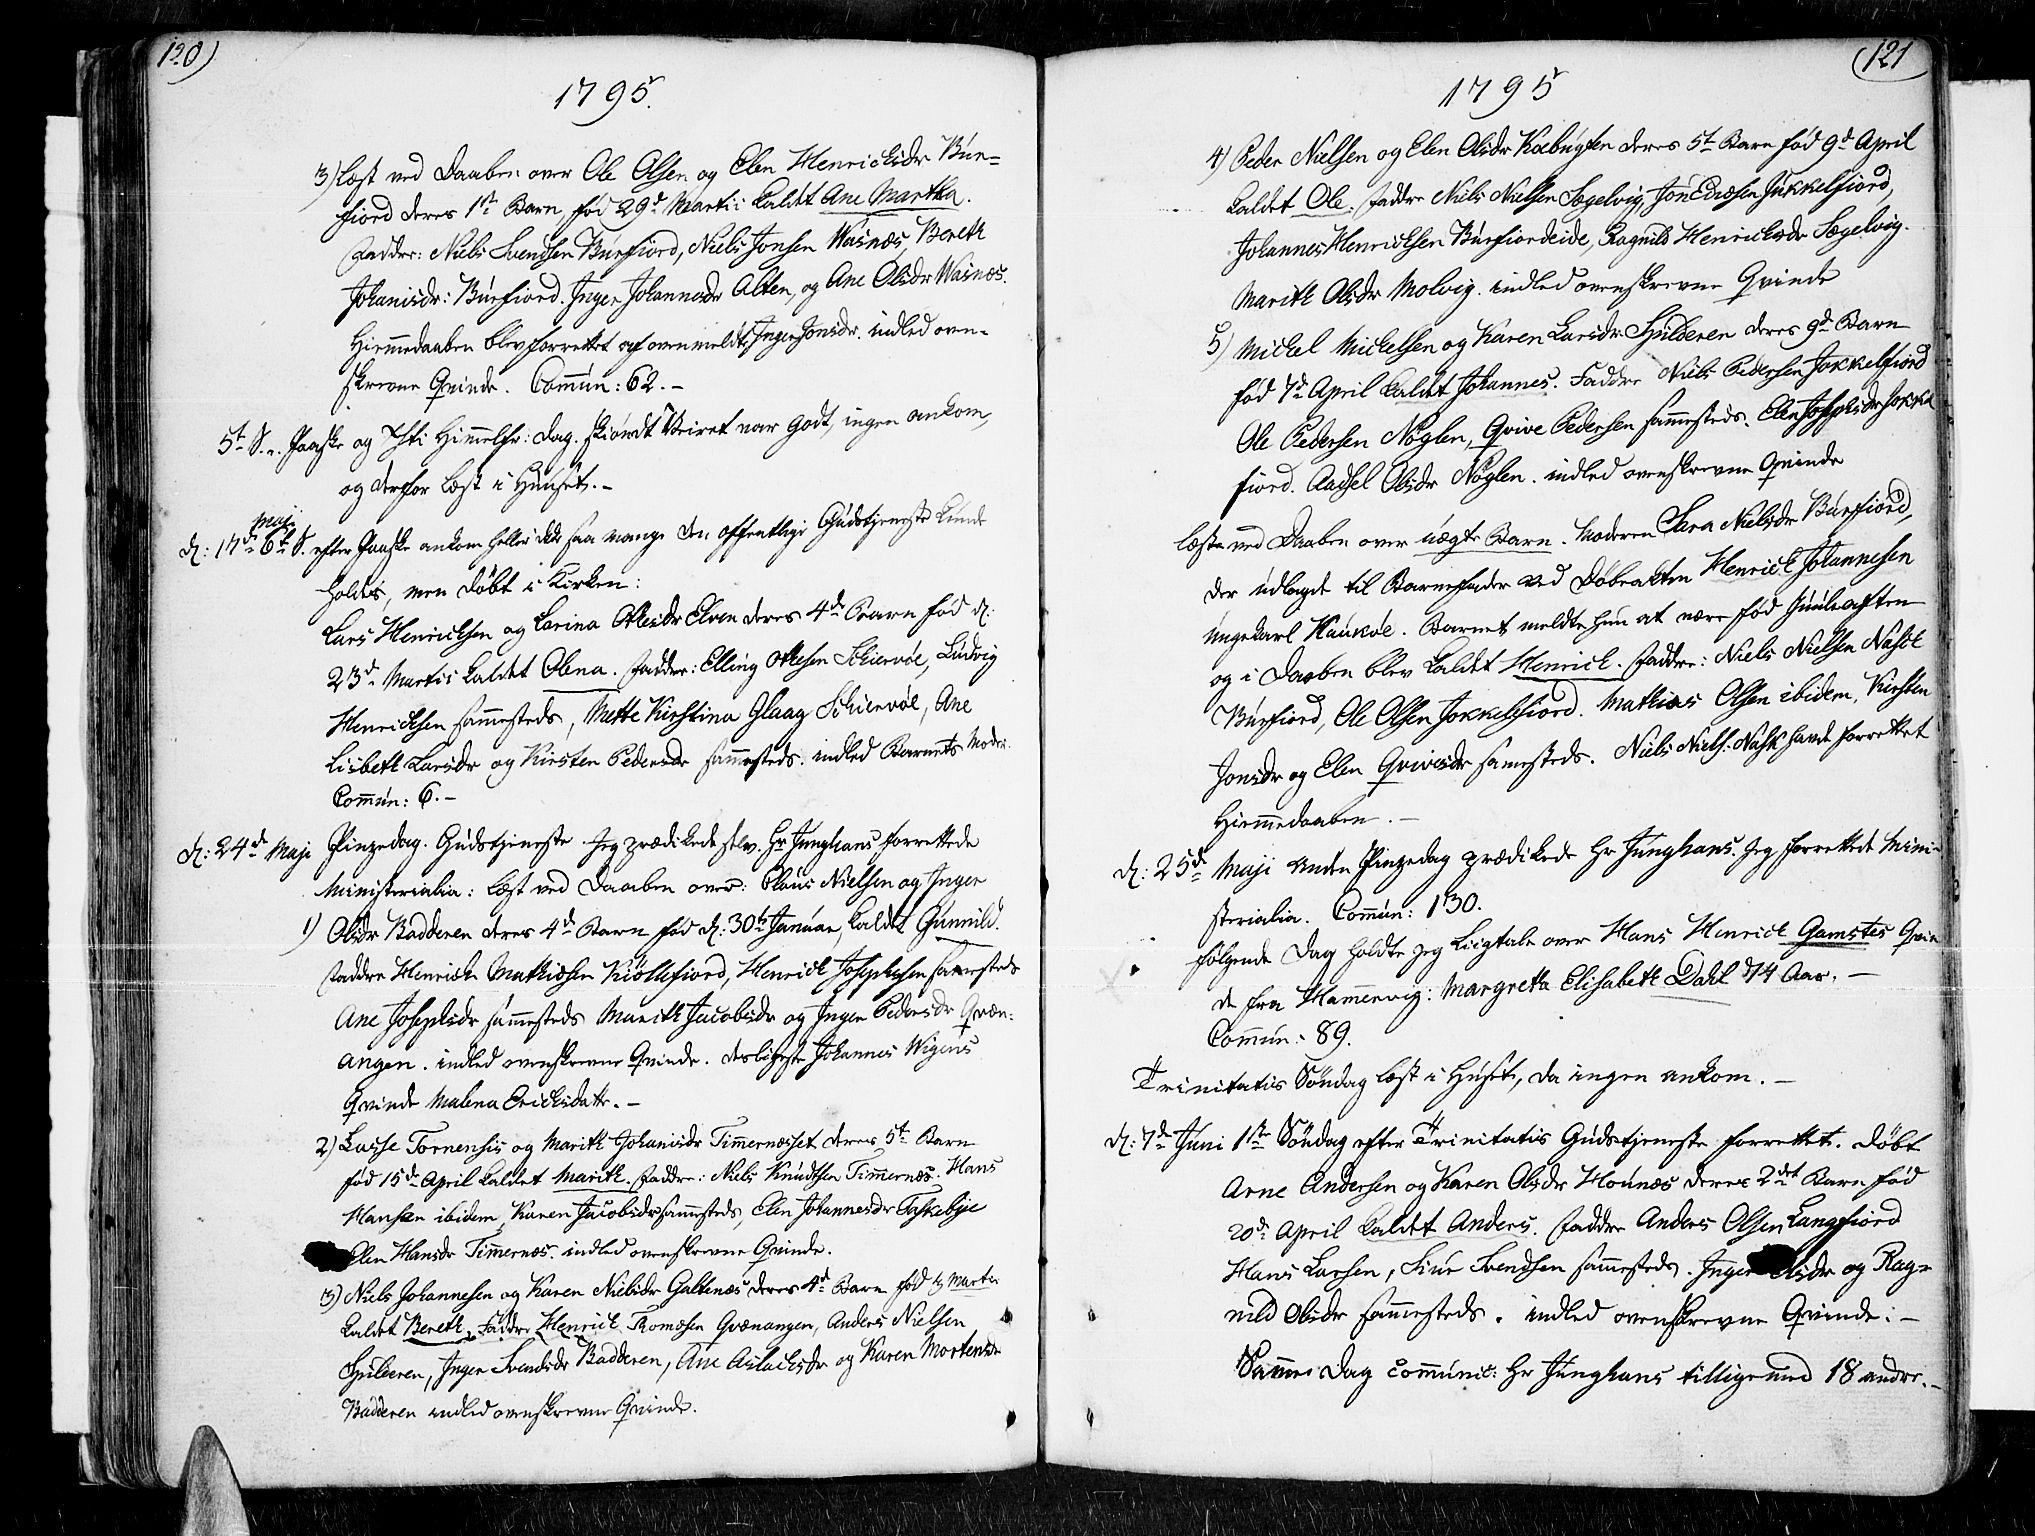 120)
1795.
3) Læst ved Daaben over Ole Olsen og Elen Henrichsdr Bur=
fiord deres 1ste Barn, fød 29d Martii kaldet Ane Martha.
Faddre: Niels Svendsen Burfiord, Niels Jonsen Wasnæs, Bereth
Johanisdr: Burfiord. Inger Johannesdr Alten, og Ane Olsdr Wasnæs.
Hiemmedaaben blev forrettet af ovenmeldte Inger Jonsdr. indled oven=
skrevne Qvinde. Commun: 62.-
5te S. e. Paaske og Xsti Himmelfr: dag. skiøndt Veiret var godt, ingen ankom,
og derfor læst i Huuset.-
d: 17de Maji 6te S. efter Paaske ankom heller ikke saa mange den offentlige Gudstjeneste kunde
holdes, men døbt i Kirken:
Lars Henrichsen og Karina Ollesdr Elven deres 4de Barn fød d:
23d Martii kaldet Olena. Faddre: Elling Ollesen Schiervøe, Ludvig
Henrichsen sammesteds, Mette Kirstina Glaag Schiervøe, Ane
Lisbeth Larsdr og Kirsten Pedersdr sammesteds. indled Barnets Moder.
Commun: 6.-
d: 24de Maji Pinzedag. Gudstjeneste Jeg prædikede selv. Hr Junghans forrettede
Ministerialia: Læst ved Daaben over: Claus Nielsen og Inger
1) Olsdr Badderen deres 4de Barn fød d: 30te Januar, kaldet Gunnild.
Faddre Henrich Mathiesen Kiøllefiord, Henrich Josephsen samesteds
Ane Josephsdr sammesteds Marith Jacobsdr og Inger Pedersdr Qvæn:
angen. indled ovenskrevne Qvinde. desligeste Johannes Wigens
Qvinde Malena Ericksdattr.-
2) Lasse Tornensis og Marith Johanisdr Timmernæsset deres 5te Barn
fød 15de April kaldet Marith. Faddre: Niels Knudtsen Timmernæs. Hans
Hansen ibidem, Karen Jacobsdr sammesteds, Elen Johannesdr Taskebye
Elen Hansdr Timmernæs. indled ovenskrevne Qvinde.
3) Niels Johannesen og Karen Nielsdr Galtenæs deres 4de Barn fød Marti
kaldet Bereth, Faddre Henrich Thomæsen Qvænangen, Anders Nielsen
Spilderen, Inger Svendsdr Badderen, Ane Aslachsdr og Karen Mortensdr
Badderen indled ovenskrevne Qvinde.
(121
1795
4) Peder Nielsen og Elen Olsdr Kæbugten deres 5te Barn fød 9d April
kaldet Ole. Faddre Niels Nielsen Sægelvig, Jon Jukkelfiord,
Johannes Henrichsen Burfiordeide, Ragnild Henrichsdr Sægelvig.
Marith Olsdr Molvig. indled ovenskrevne Qvinde
5) Mickel Mickelsen og Karen Larsdr Spilderen deres 9de Barn
fød 7de April kaldet Johannes. Faddre Niels Pedersen Jokkelfiord
Ole Pedersen Nøglen, Qvive Pedersen sammesteds. Elen Josephsdr Jokkel
fiord. Aadsel Olsdr Nøglen. indled ovenskrevne Qvinde
læst ved Daaben over uægte Barn. Moderen Sara Nielsdr Burfiord,
der udlagde til Barnefader ved Døbeakten Henrich Johannesen
ungekarl Haukøe. Barnet meldte hun at være fød Juuleaften
og i Daaben blev kaldet Henrich. Faddre: Niels Nielsen Nask
Burfiord, Ole Olsen Jokkelfiord. Mathias Olsen ibidem, Kirsten
Jonsdr og Elen Qvivisdr samesteds. Niels Niels. Nask havde forrettet
Hiemmedaaben.-
d: 25de Maji Anden Pinzedag prædikede Hr Junghans. Jeg forrettede Mini=
sterialia. Commun: 130.
følgende Dag holdte jeg Liigtale over Hans Henrich Gamstes Qvin
de fra Hammervig: Margreta Elisabeth Dahl 74 Aar.-
Commun: 89.
Trinitatis Søndag læst i Huset, da ingen ankom.-
d: 7de Juni 1ste Søndag efter Trinitatis Gudstjeneste forrettet. Døbt
Arne Andersen og Karen Olsdr Hounæs deres 2det Barn fød
20de April kaldet Anders. Faddre Anders Olsen Langfiord
Hans Larsen, Siur Svendsen sammesteds. Inger Olsdr og Rag=
nild Olsdr sammesteds. indled ovenskrevne Qvinde:-
Samme Dag Communic: Hr Junghans tilligemed 18 andre.-